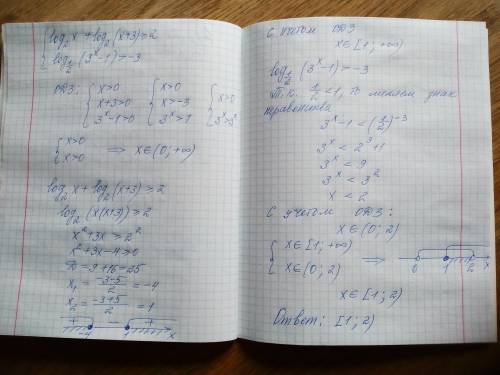 { log₂ x + log₂ (x+3) ≥ 2
{ log_{1/2} (3ˣ-1) > -3
ОДЗ: { x>0 { x>0 { x>0
x+3>0 x>-3
3ˣ-1>0 3ˣ>1
{ x>0
{ x>0 ⟹ x∈(0;+∞)
log₂ x + log₂ (x+3) ≥ 2
log₂ (x(x+3)) ≥ 2
x²+3x ≥ 2²
x²+3x-4 ≥ 0
D = 9+16 = 25
x₁ = (-3-5)/2 = -4
x₂ = (-3+5)/2 = 1
+ - +
-4 1 x
С учетом ОДЗ
x∈[1;+∞)
log_{1/2} (3ˣ-1) > -3
Т.к. 1/2 < 1, то меняем знак
неравенства
3ˣ-1 < (1/2)⁻³
3ˣ < 2³+1
3ˣ < 9
3ˣ < 3²
x < 2
С учетом ОДЗ:
x∈(0;2)
{ x∈[1;+∞)
{ x∈(0;2) ⟹ 0 1 2 x
x∈[1;2)
Ответ: [1;2)